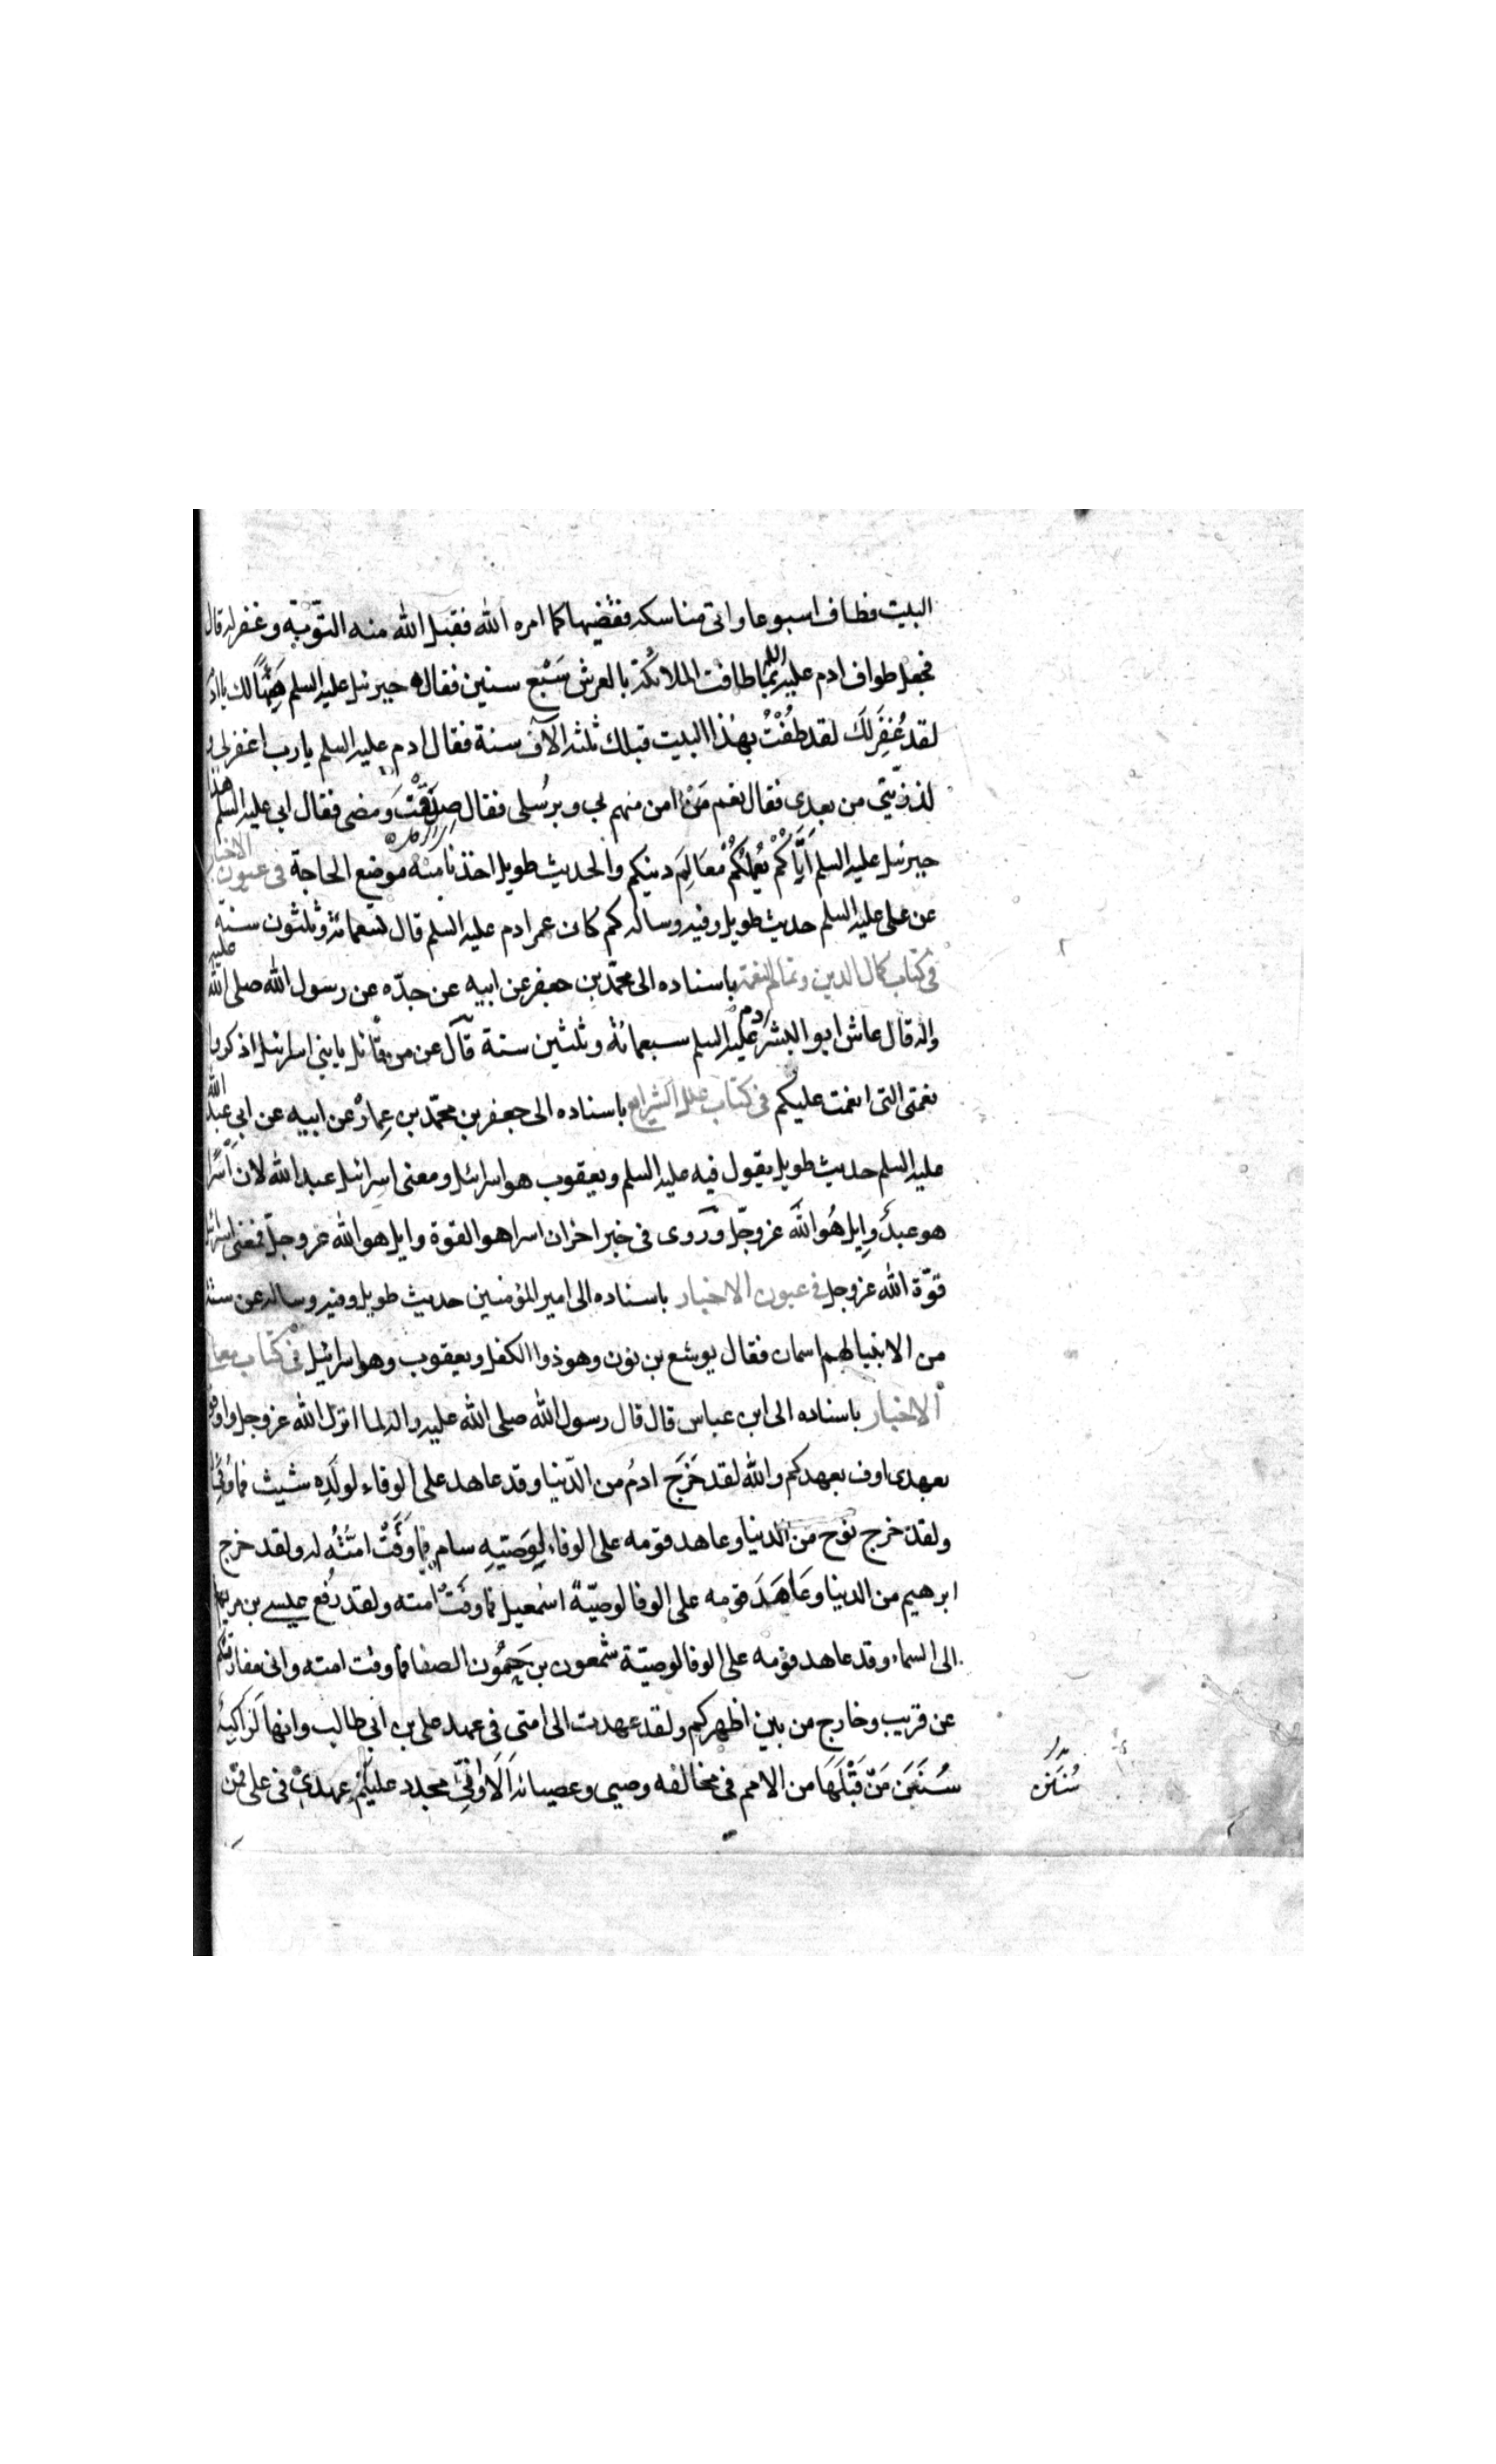 البيت فطاف اسبوعا واتى مناسكه فقضيها كما امره الله فقبل الله منه التّوبة وغفر له قال
فجعل طواف ادم عليه السلم لما طافت الملائكة بالعرش سَبْع سنين فقال جبرئيل عليه السلم هَنِيئًا لك يا ادم
لقد غُفِرَ لَكَ لقد طُفْتُ بهذا البيت قبلك ثلثه الآف سنة فقال ادم عليه السلم يا رب اغفر لى و
لذرّيّتى من بعدى فقال نعم مَنْ امن منهم بى وبرُسلى فقال صدقْتَ ومضى فقال ابى عليه السلم هذا
جبرئيل عليه السلم اَتَاكُمْ يُعلمُكُمْ مَعَالِمَ دينكم والحديث طويل اخذنا منه موضع الحاجة فى عيون الاخبار
عن على عليه السلم حديث طويل وفيه وساله كم كان عمر ادم عليه السلم قال تسعمائة وثلثون سنة
فى كتاب كمال الدين وتمام النعمة باسناده الى محمّد بن جعفر عن ابيه عن جدّه عن رسول الله صلى الله عليه
واله قال عاش ابو البشر ادم عليه السلم سبعمائة وثلثين سنة قال عن من قائل يا بنى اسرائيل اذكروا
نعمتى التى انعمت عليكم فى كتاب علل الشرايع باسناده الى جعفر بن محمّد بن عِمارة عن ابيه عن ابى عبد الله
عليه السلم حديث طويل يقول فيه عليه السلم ويعقوب هو اسرائيل ومعنى اسرائيل عبد الله لان اسرا
هو عبد وايل هُو الله عزوجلّ ورَوى فى خبر اخر ان اسرا هو القوة وايل هو الله عزوجلّ فمعنى اسرائيل
قوّة الله عزوجل فى عيون الاخبار باسناده الى امير المؤمنين حديث طويل وفيه وساله عن ستة
من الانبيا لهم اسمان فقال يوشع بن نون وهو ذوا الكفل ويعقوب وهو اسرائيل فى كتاب معانى
الاخبار باسناده الى ابن عباس قال قال رسول الله صلى الله عليه واله لما انزل الله عزوجل واوفوا
بعهدى اوف بعهدكم والله لقد خَرَجَ ادمُ من الدّنيا وقد عاهد على الوفاء لولَدِه شيث فما وُفِىَ لَهُ
ولقد خرج نوح من الدنيا وعاهد قومه على الوفاء لِوَصيّهِ سام فما وَفَتْ امّتُهُ له ولقد خرج
ابرهيم من الدنيا وعَاهَدَ قومه على الوفا لوصيّهُ اسْمعيل فما وفَتْ امته ولقد رُفع عيسى بن مريم
الى السماء وقد عاهد قومه على الوفا لوصيّة شمعون بن حَمُّون الصفا فما وفت امته وانى مفارقكم
عن قريب وخارج من بين اظهركم ولقد عهدت الى امتى فى عهد على بن ابى طالب وانها لراكبة
سُنَنَ مَنْ قَبْلَهَا من الامم فى مخالفه وصيى وعصيانه اَلَا وَاِنّى مجدد عليْكُمْ عهدى فى على فمن
سُنَن